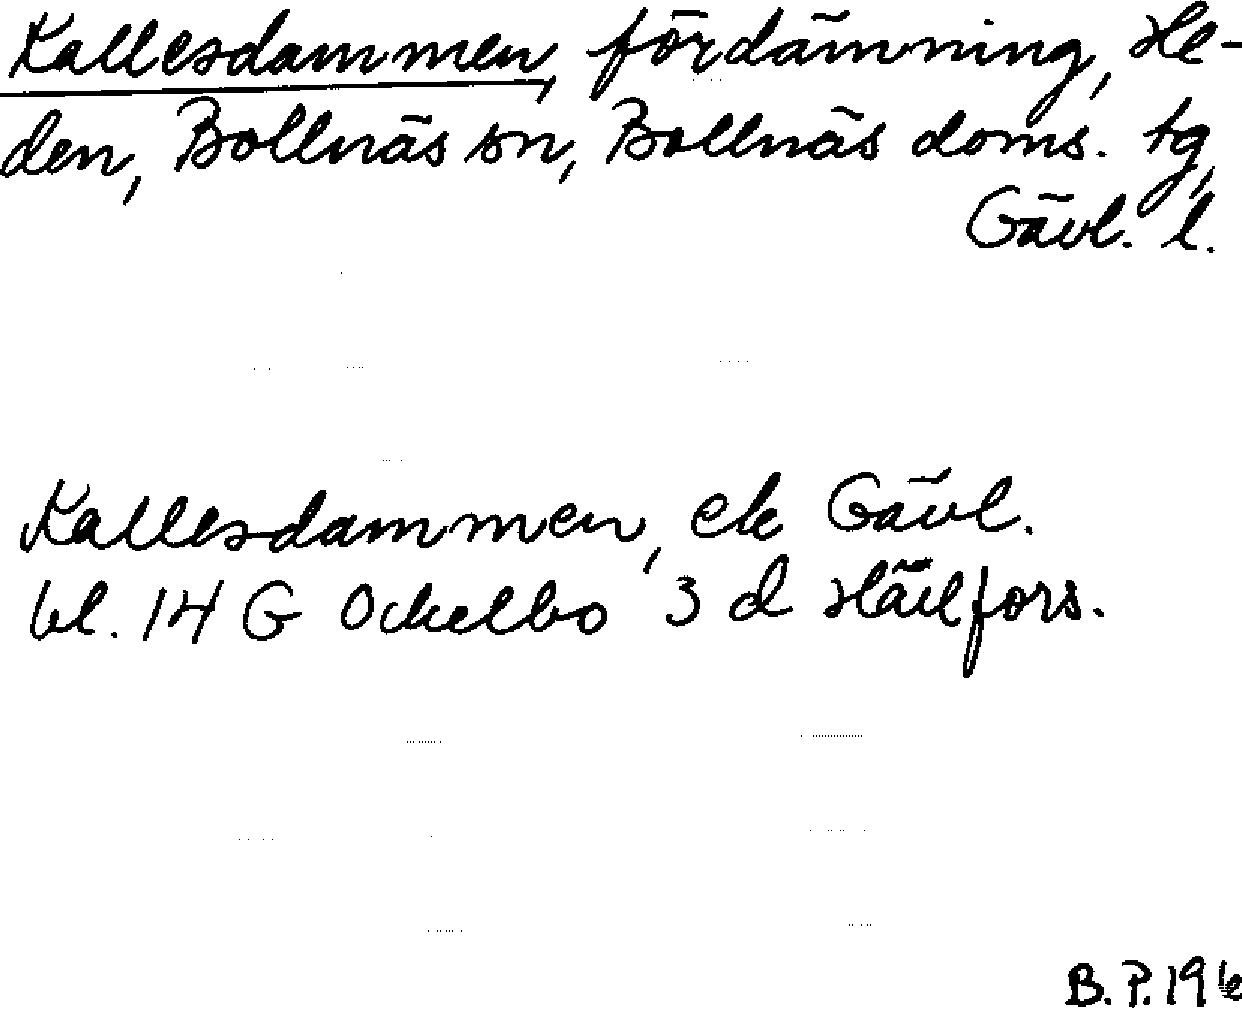 Kallesdammen, fördämning, He-
den, Bollnäs sn, Bollnäs doms. tg,
Gävl. l.
Kallesdammen, ek Gävl.
bl. 14 H G Ockelbo 3 d Häilfors.
B. P. 196